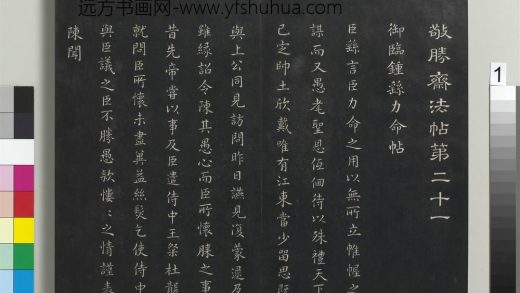 远方书画网-www.yfshuhua.com
敬勝齋法帖第二十一
御臨鍾繇力命帖
臣繇言臣力命之用以無所立帷幄之
謀而又愚耄聖恩低佪待以殊禮天下
已定帥土欣戴唯有江東當少留思既
與上公同見訪問昨日讌見復蒙逮及
雖緣詔令陳其愚心而臣所懷膝之事
昔先帝嘗以事及臣遣侍中王粲杜襲
就問臣所懷未盡冀益絲髮乞使侍中
與臣議之臣不勝愚款慺〻之情謹表
陳聞
1